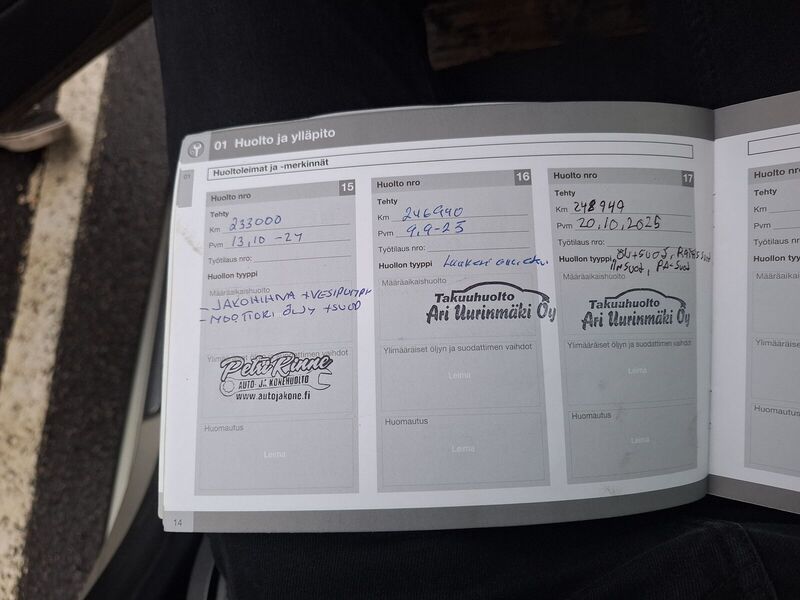 01 Huolto ja ylläpito
01
Huoltoleimat ja -merkinnät
Huolto nro 15
Tehty
Km 233000
Pvm 13,10 -24
Työtilaus nro:
Huollon tyyppi
Määräaikaishuolto
- JAKOHIHNA +VESIPUMPPU
- MOOTTORI ÖLJY +SUOD
Ylimääräiset öljyn ja suodattimen vaihdot
Petri Rinne
AUTO- JA KONEHUOLTO
www.autojakone.fi
Huomautus
Leima
14
Huolto nro 16
Tehty
Km 246990
Pvm 9,9-25
Työtilaus nro:
Huollon tyyppi Laakeri
Määräaikaishuolto
Takuuhuolto
Ari Uurinmäki Oy
Ylimääräiset öljyn ja suodattimen vaihdot
Leima
Huomautus
Leima
Huolto nro 17
Tehty
Km 248949
Pvm 20,10,2025
Työtilaus nro:
Huollon tyyppi
Määräaikaishuolto
Takuuhuolto
Ari Uurinmäki Oy
Ylimääräiset öljyn ja suodattimen vaihdot
Leima
Huomautus
Leima
Huolto nro
Tehty
Km
Pvm
Työtilaus nro:
Huollon tyyppi